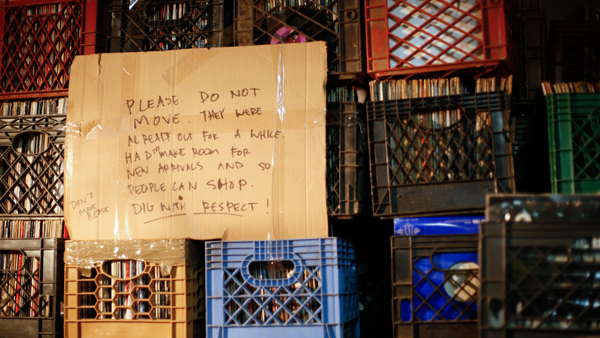 PLEASE DO NOT
MOVE. THEY WERE
ALREADY OUT FOR A WHILE.
HAD TO MAKE ROOM FOR
NEW ARRIVALS AND SO
PEOPLE CAN SHOP.
DIG WITH RESPECT!
DON'T
MOVE
PLEASE